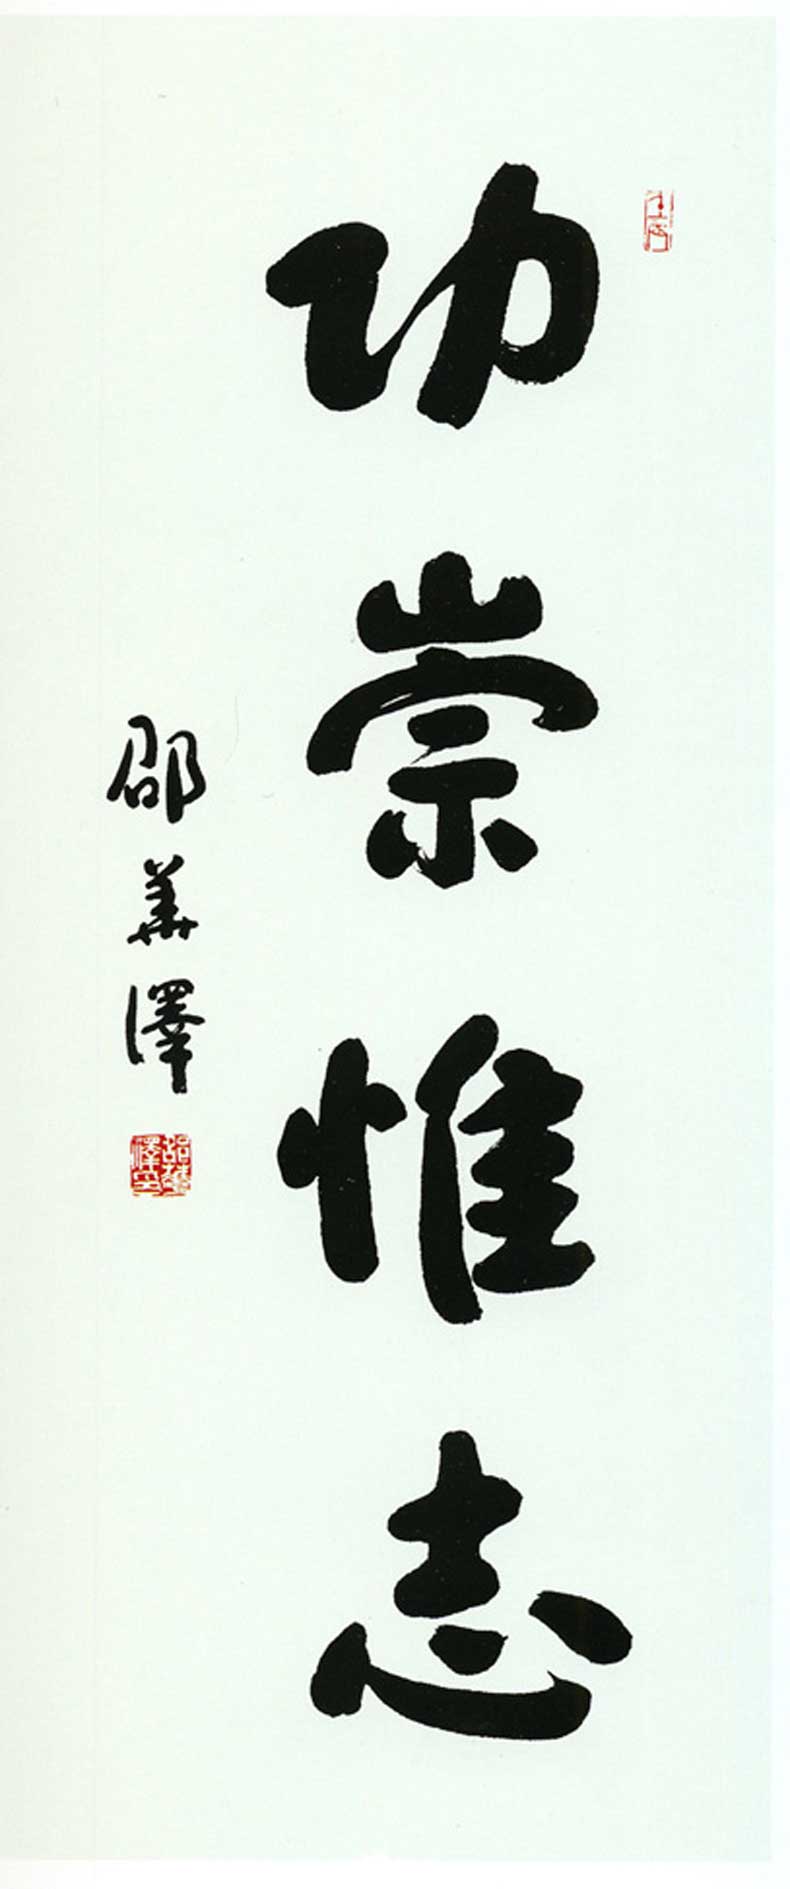 功崇惟志
邵華澤
邵華澤印